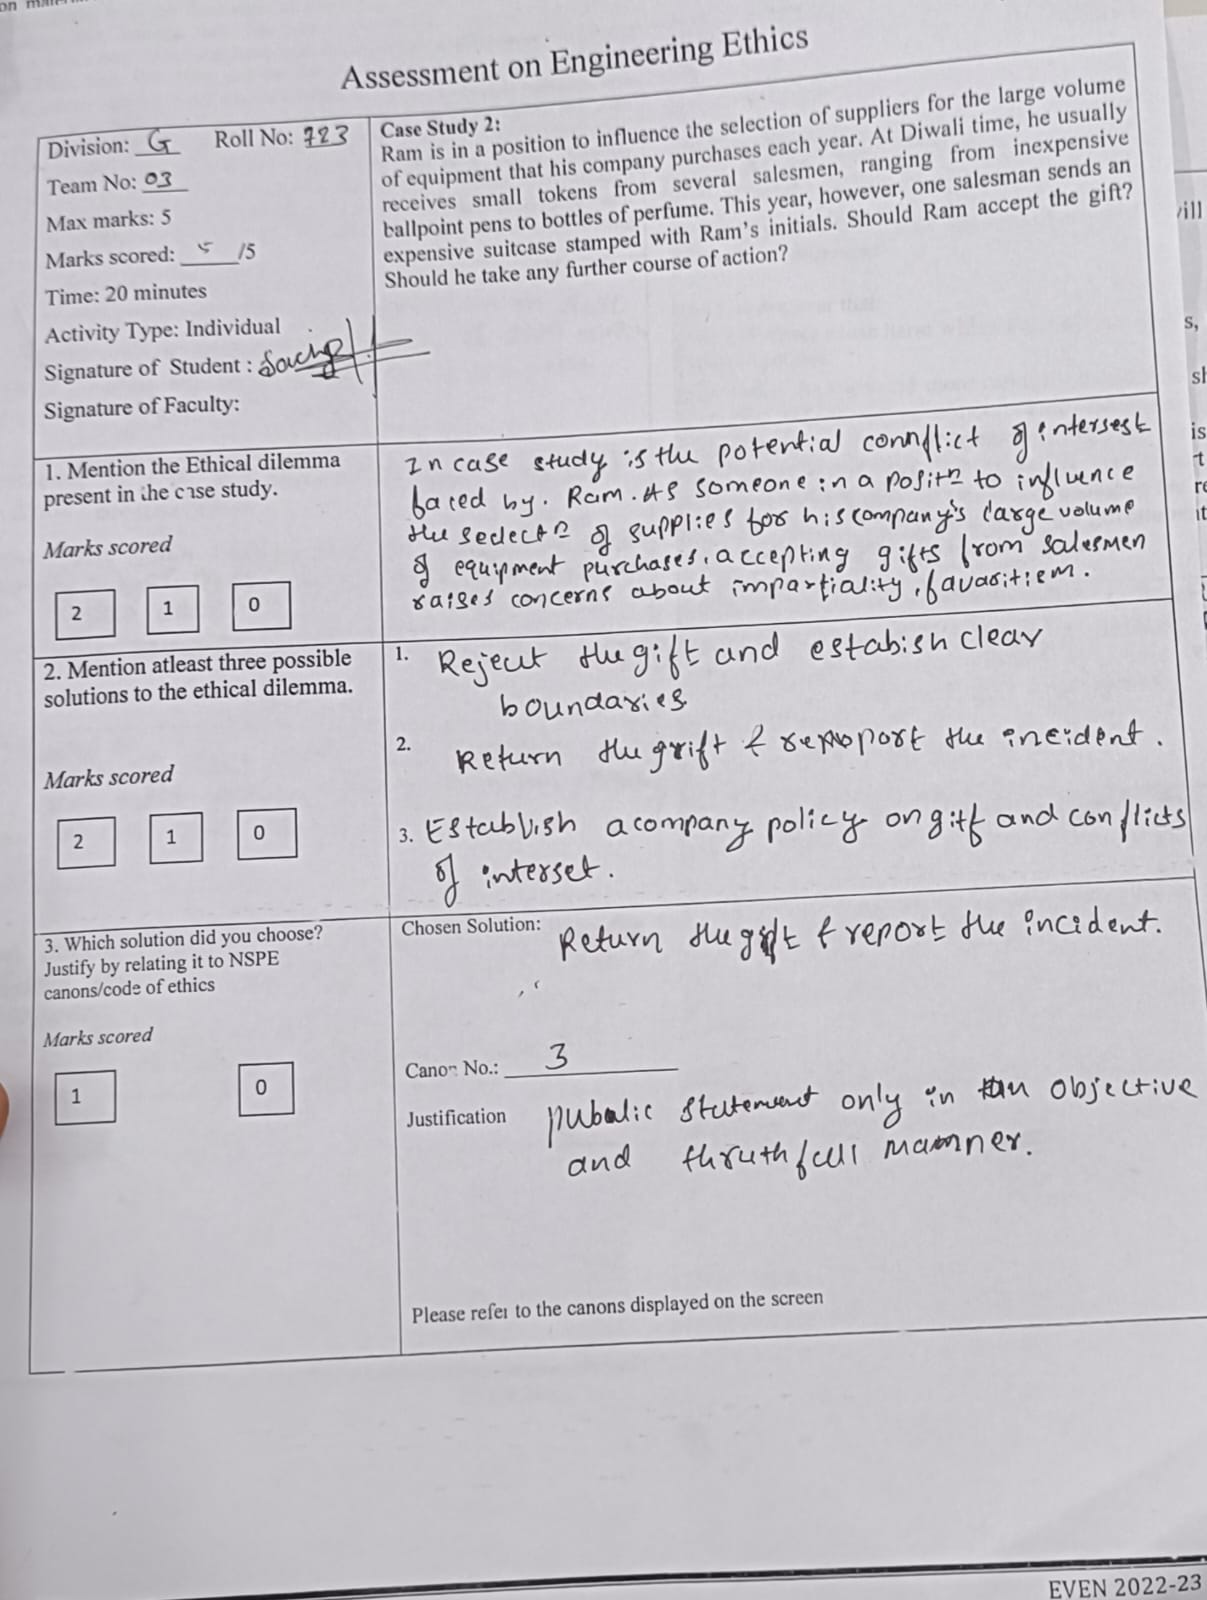 Assessment on Engineering Ethics
Division: G Roll No: 723
Team No: 03
Max marks: 5
Marks scored: 5 /5
Time: 20 minutes
Activity Type: Individual
Signature of Student :
Signature of Faculty:
Case Study 2:
Ram is in a position to influence the selection of suppliers for the large volume
of equipment that his company purchases each year. At Diwali time, he usually
receives small tokens from several salesmen, ranging from inexpensive
ballpoint pens to bottles of perfume. This year, however, one salesman sends an
expensive suitcase stamped with Ram's initials. Should Ram accept the gift?
Should he take any further course of action?
1. Mention the Ethical dilemma
present in the case study.
Marks scored
2 1 0
In case study is the potential connflict of intersest
faced by. Ram. As someone in a positn to influence
the selectn of supplies for his company's large volume
of equipment purchases, accepting gifts from salesmen
raises concerns about impartiality, favaritiem.
2. Mention atleast three possible
solutions to the ethical dilemma.
Marks scored
2 1 0
1. Reject the gift and estabish clear
boundaries
2. Return the grift & report the incident.
3. Establish a company policy on gitf and conflicts
of interset.
3. Which solution did you choose?
Justify by relating it to NSPE
canons/code of ethics
Marks scored
1 0
Chosen Solution: Return the gift & report the incident.
Canon No.: 3
Justification pubalic statement only in an objective
and thruthfull manner.
Please refer to the canons displayed on the screen
EVEN 2022-23